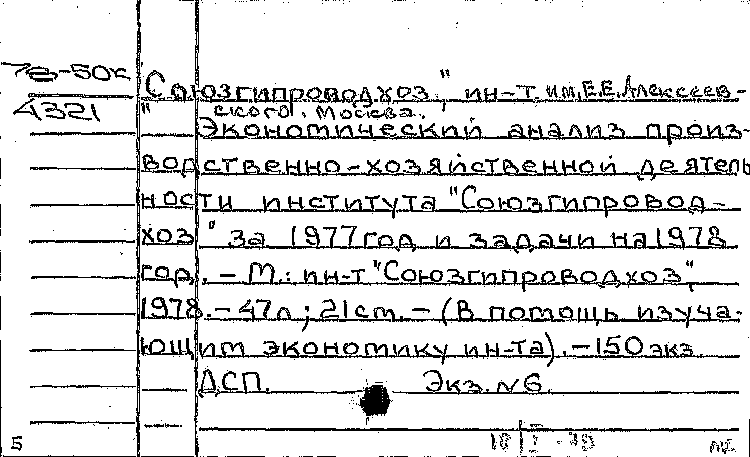 78-50к
4321
"Союзгипроводхоз", ин-т им. Е.Е. Алексеев-
ского. Москва.
Экономический анализ произ-
водственно-хозяйственной деятель
ности института "Союзгипровод-
хоз" за 1977 год и задачи на 1978
год. - М.: ин-т "Союзгипроводхоз",
1978. - 47л; 21см. - (В помощь изуча-
ющим экономику ин-та). - 150 экз.
ДСП. Экз. №6.
5